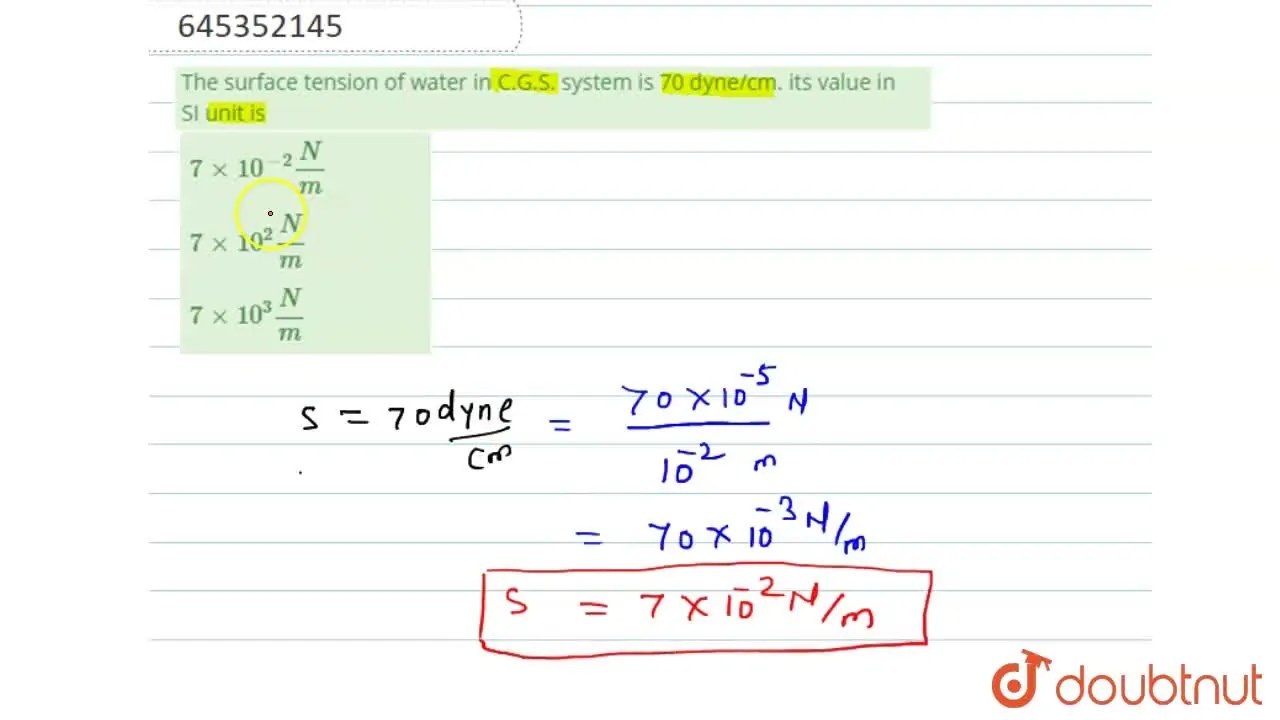 645352145
The surface tension of water in C.G.S. system is 70 dyne/cm. its value in
SI unit is
7 × 10⁻² N/m
7 × 10² N/m
7 × 10³ N/m
S = 70 dyne/cm = 70 × 10⁻⁵ N / 10⁻² m
= 70 × 10⁻³ N/m
S = 7 × 10⁻² N/m
doubtnut